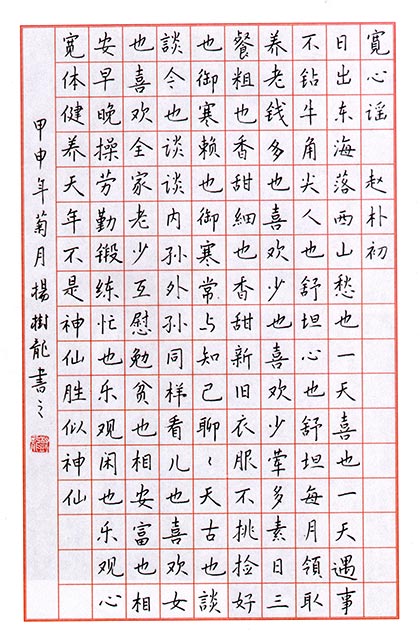 寬心谣 赵朴初
日出东海落西山愁也一天喜也一天遇事
不钻牛角尖人也舒坦心也舒坦每月領取
养老钱多也喜欢少也喜欢少荤多素日三
餐粗也香甜細也香甜新旧衣服不挑捡好
也御寒赖也御寒常与知己聊〻天古也談
談今也谈谈内孙外孙同样看儿也喜欢女
也喜欢全家老少互慰勉贫也相安富也相
安早晚操劳勤锻练忙也乐观闲也乐观心
宽体健养天年不是神仙胜似神仙
甲申年菊月揚樹能書之